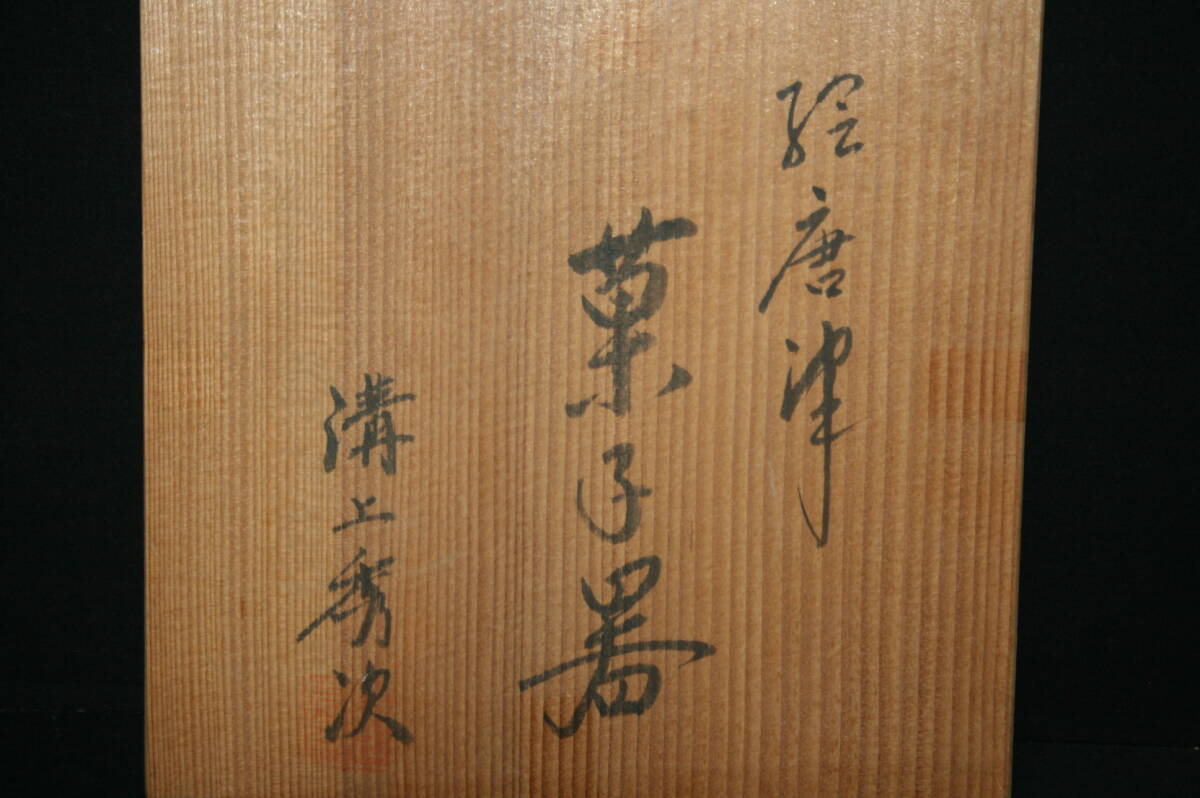 絵唐津
菓子器
溝上秀次